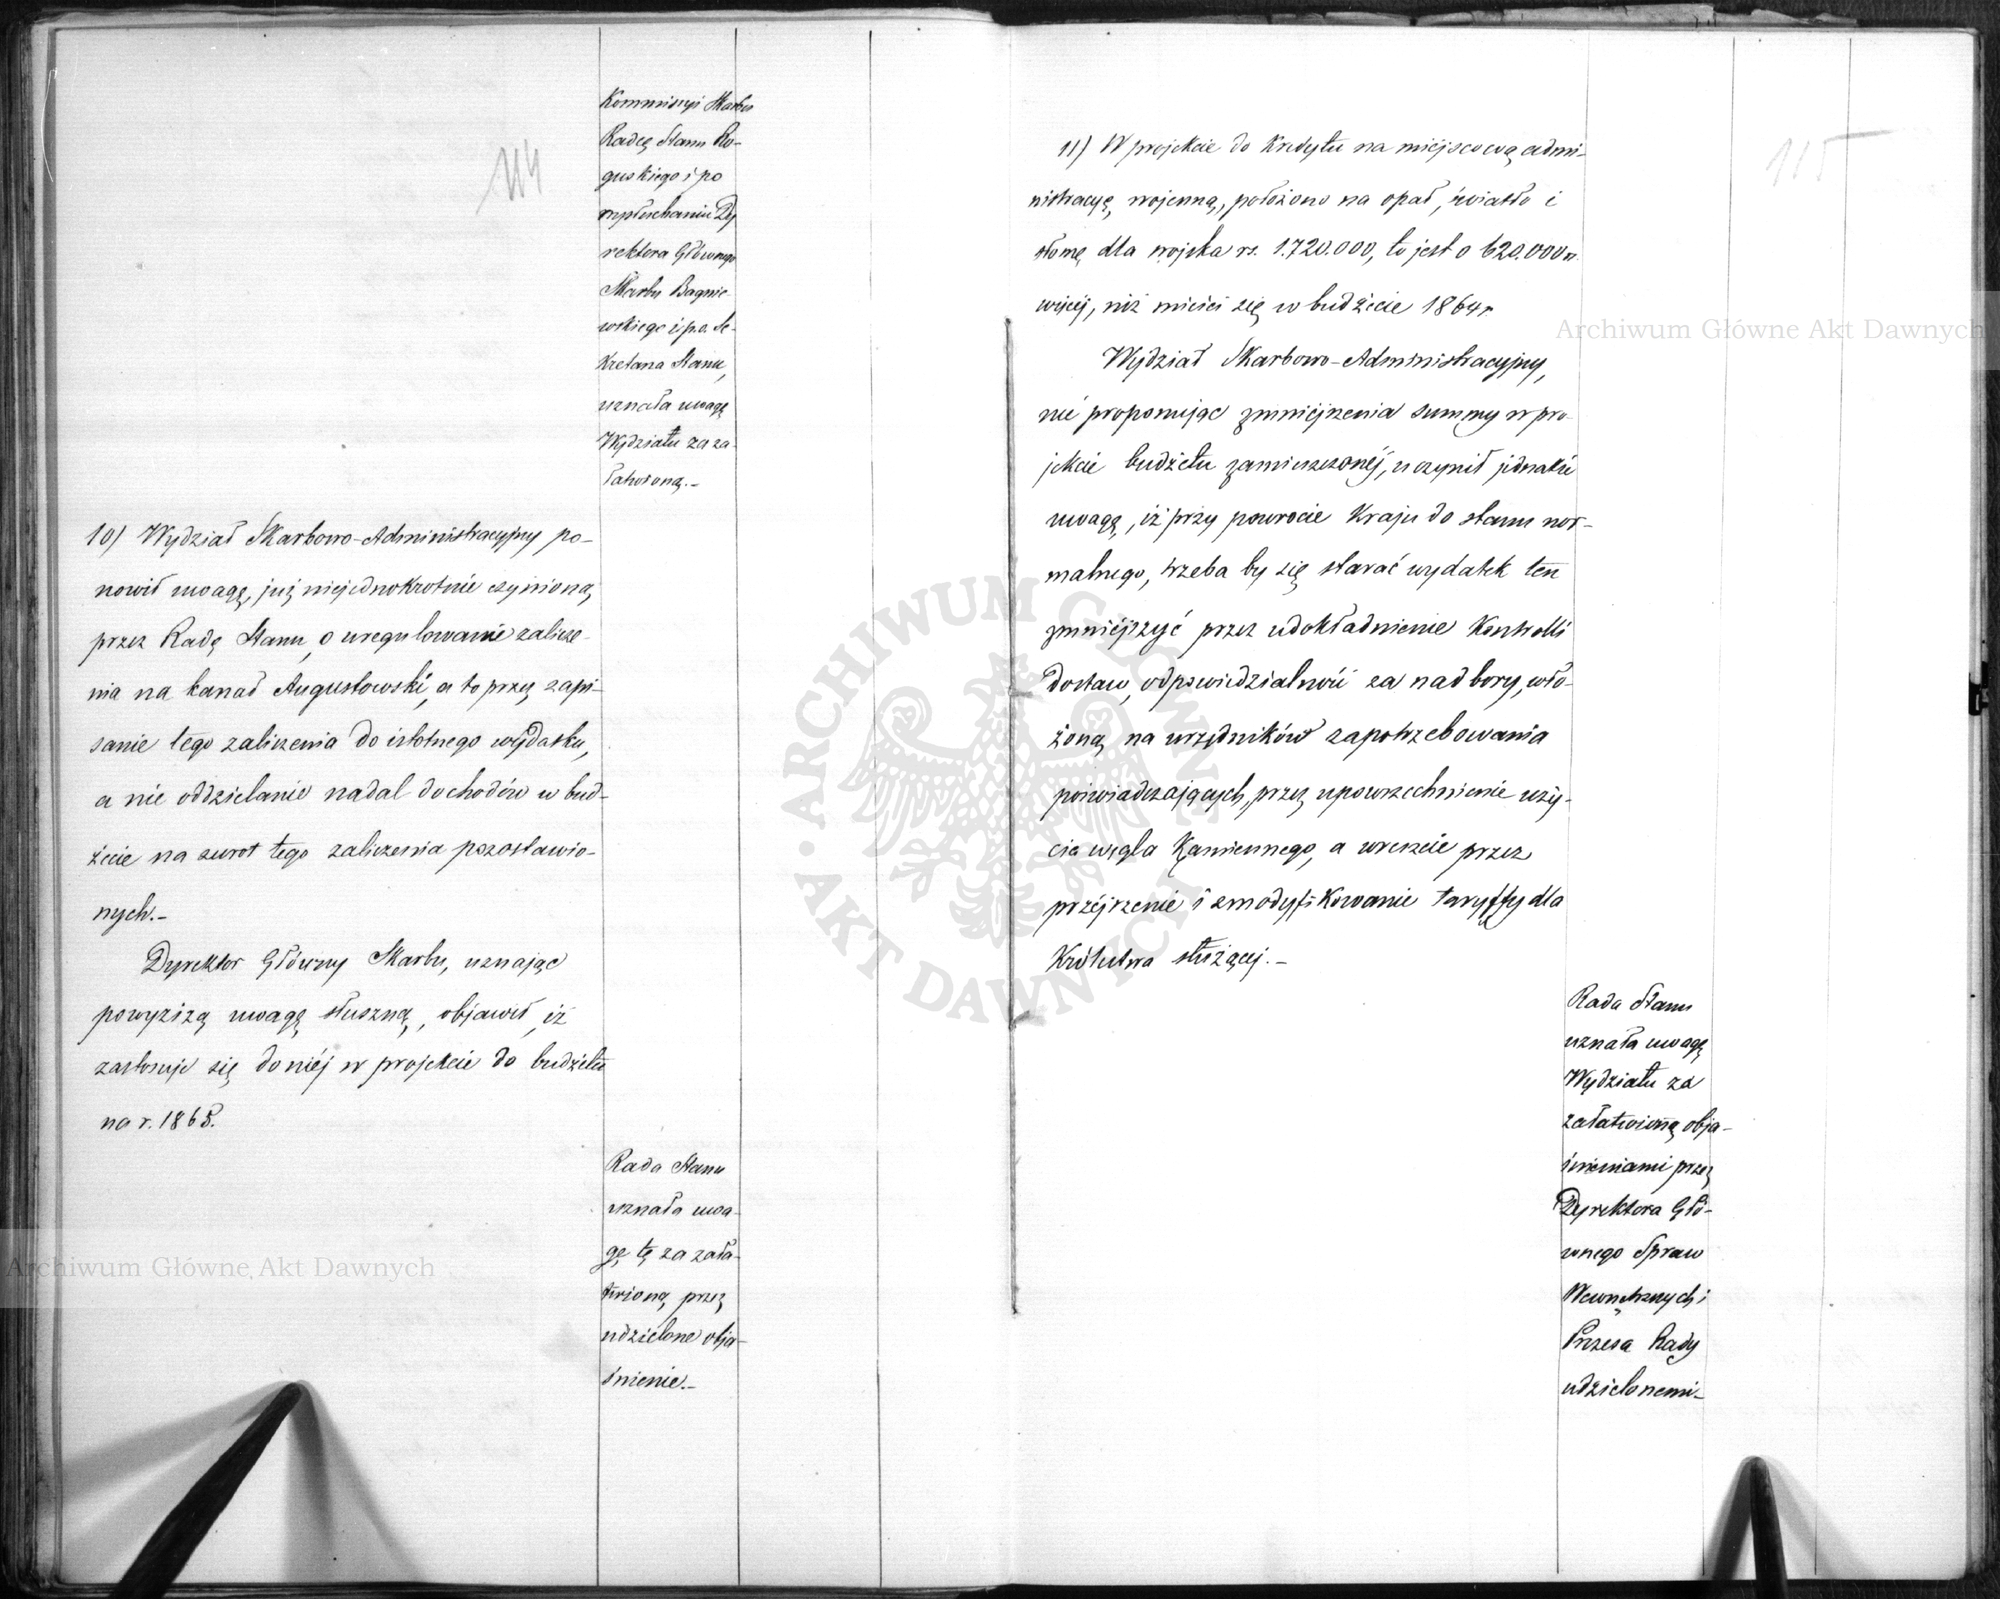 114
Kommissyi Skarbu
Radcę Stanu Ro-
guskiego i po
wysłuchaniu Dy
rektora Głównego
Skarbu Bagnie-
wskiego i p.o. Se-
kretarza Stanu,
uznała uwagę
Wydziału za za-
łatwioną.-
10) Wydział Skarbowo-Administracyjny po-
nowił uwagę, już niejednokrotnie czynioną
przez Radę Stanu, o uregulowanie zalicze-
nia na kanał Augustowski, a to przez zapi-
sanie tego zaliczenia do istotnego wydatku,
a nie oddzielanie nadal dochodów w bud-
żecie na zwrot tego zaliczenia pozostawio-
nych.-
Dyrektor Główny Skarbu, uznając
powyższą uwagę słuszną, objawił, iż
zastosuje się do niéj w projekcie do budżetu
na r. 1865.
Rada Stanu
uznała uwa-
gę tę za zała-
twioną przez
udzielone obja-
śnienie.-
115
11) W projekcie do Kredytu na miejscową admi-
nistracyę wojenną, położono na opał, światło i
słomę dla wojska rs. 1.720.000, to jest o 620.000 rs.
więcéj, niż mieści się w budżecie 1864 r.
Wydział Skarbowo-Administracyjny,
nie proponując zmniejszenia summy w pro-
jekcie budżetu zamieszczonéj, uczynił jednakże
uwagę, iż przy powrocie Kraju do stanu nor-
malnego, trzeba by się starać wydatek ten
zmniejszyć przez udokładnienie Kontrolli
Dostaw, odpowiedzialność za nadbory, wło-
żoną na urzędników zapotrzebowania
poświadczających, przez upowszechnienie uży-
cia węgla Kamiennego, a wreszcie przez
przéjrzenie i zmodyfikowanie taryffy dla
Królestwa służącej.-
Rada Stanu
uznała uwagę
Wydziału za
załatwioną obja-
śnieniami przez
Dyrektora Głó-
wnego Spraw
Wewnętrznych i
Prezesa Rady
udzielonemi-
Archiwum Główne Akt Dawnych
Archiwum Główne Akt Dawnych
ARCHIWUM GŁÓWNE
AKT DAWNYCH